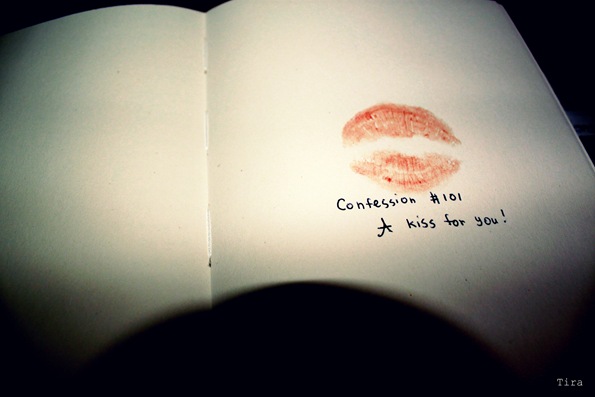 Confession #101
A kiss for you!
Tira